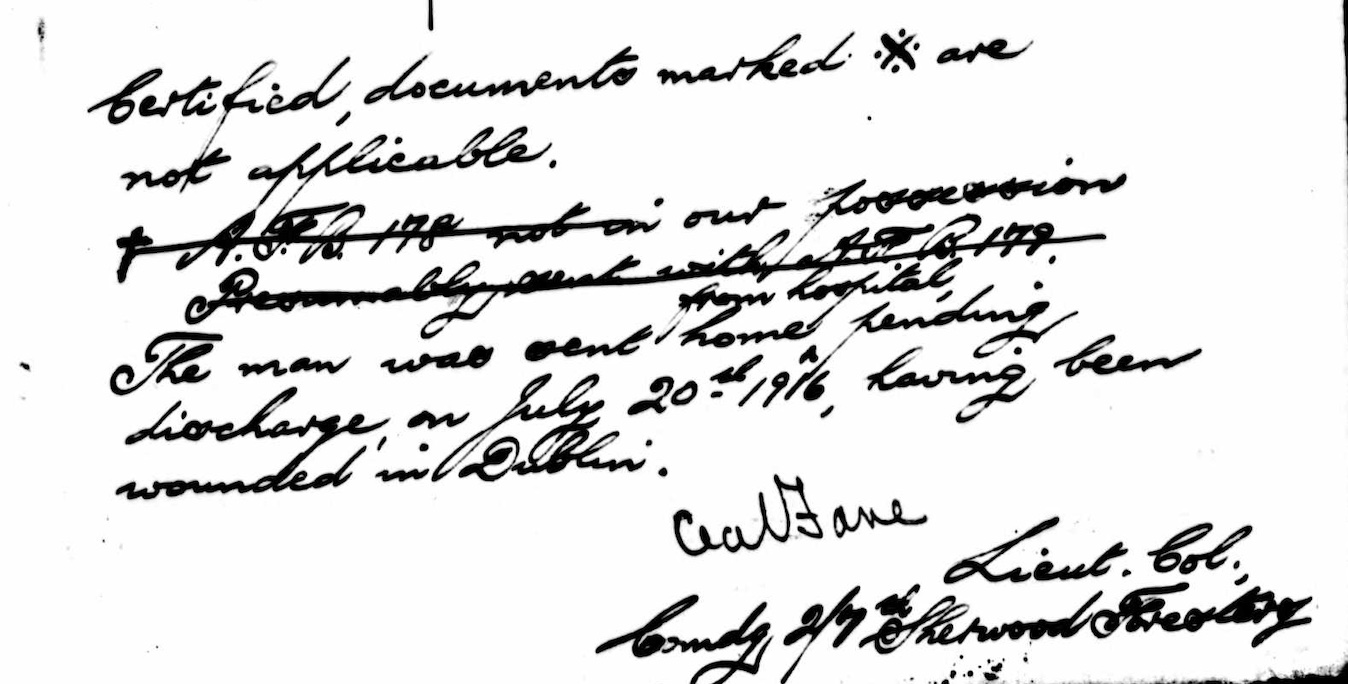 Certified, documents marked ※ are
not applicable.
† A.F.B. 178 not in our possession
Presumably sent with A.F.B. 179.
from hospital,
The man was sent home ^ pending
discharge, on July 20th 1916, having been
wounded in Dublin.
Cecil Fane
Lieut. Col.,
Comdg 2/7th Sherwood Foresters